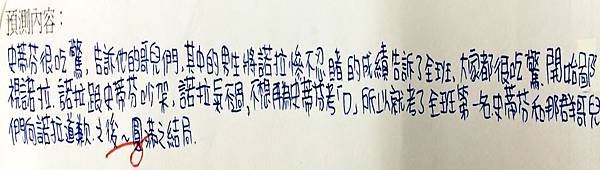 預測內容：
史蒂芬很吃驚，告訴他的哥兒們，其中的男生將諾拉慘不忍睹的成績告訴了全班，大家都很吃驚，開始鄙
視諾拉，諾拉跟史蒂芬吵架，諾拉氣不過，不想再為史蒂芬考「D」，所以就考了全班第一名，史蒂芬和那群哥兒
們向諾拉道歉，之後～圓滿之結局．